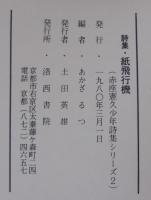 詩集・紙飛行機
(赤座憲久少年詩集シリーズ2)
発行・一九八〇年三月一日
編者・あかざるつ
発行者・土田英雄
発行所・洛西書院
京都市右京区太秦藤ヶ森町二四
電話 京都(八七二)四六五七